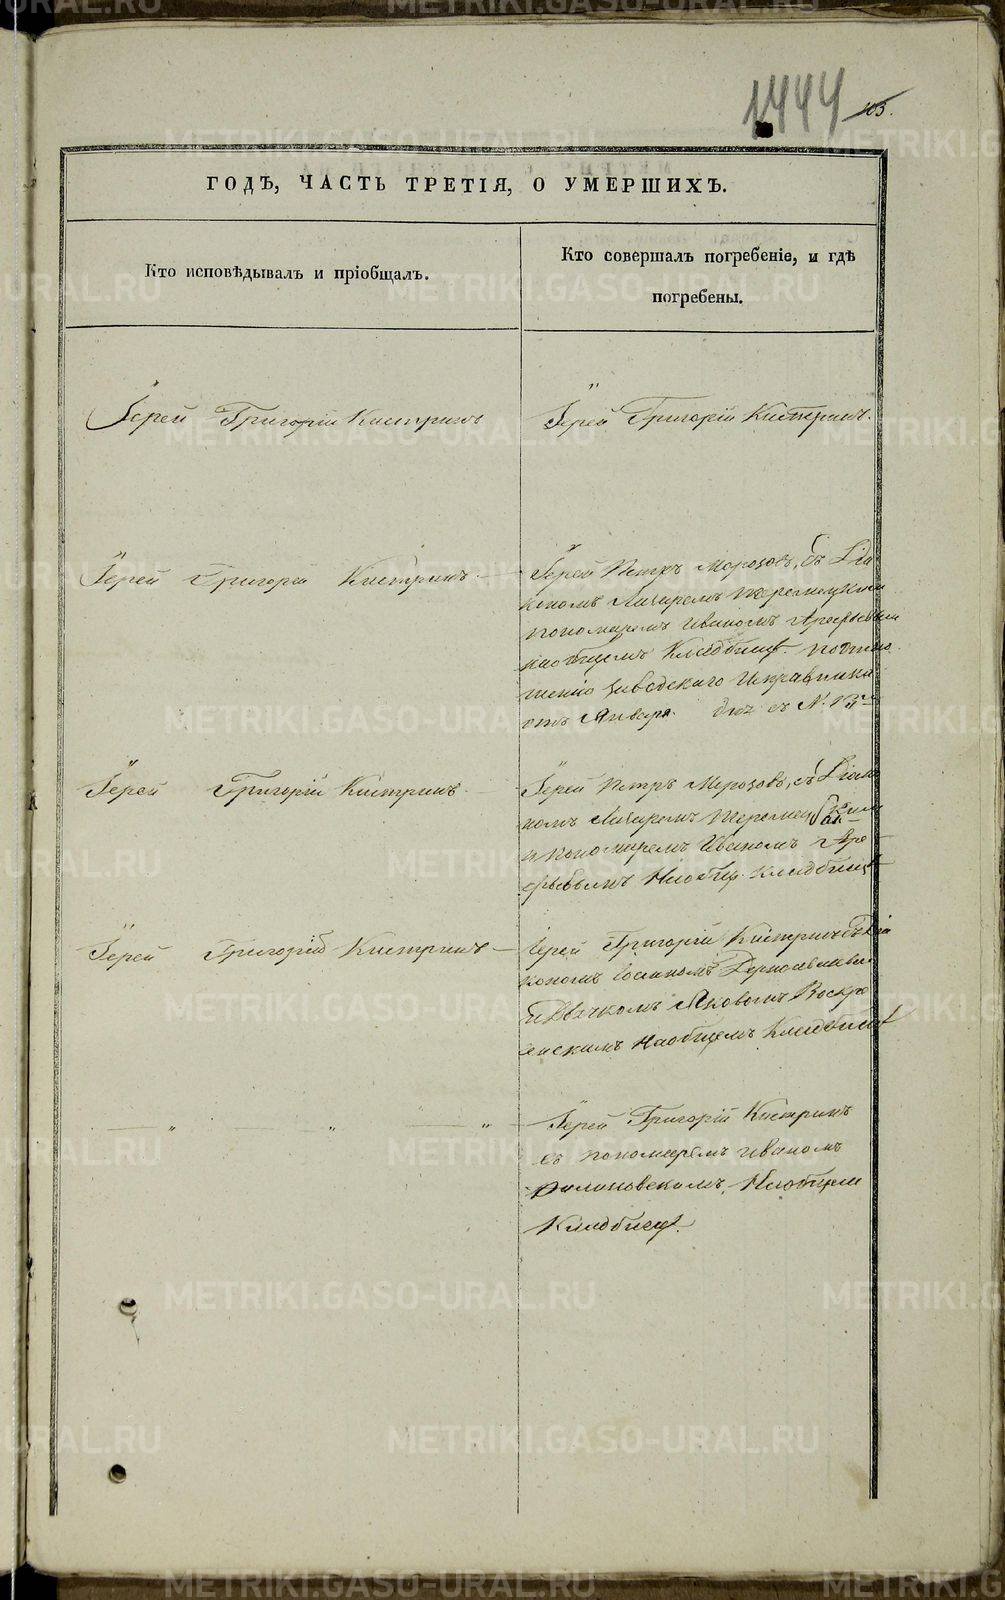 1444 103.
ГОДѢ, ЧАСТЬ ТРЕТІЯ, О УМЕРШИХЪ.
Кто исповѣдывалъ и пріобщалъ.
Кто совершалъ погребеніе, и гдѣ
погребены.
Іерей Григорій Кистринъ
Іерей Григорій Кистринъ.
Іерей Григорій Кистринъ.
Іерей Петръ Морозовъ, съ Діа
кономъ Лазаремъ
пономаремъ Иваномъ Арефьевым
на общемъ Кладбищѣ. по отно
шенію Заводскаго Исправника
отъ Января.
Іерей Григорій Кистринъ.
Іерей Петръ Морозовъ, съ Діако
номъ Лазаремъ
и пономаремъ Иваномъ Аре
фьевымъ На общ. Кладбищѣ
Іерей Григорій Кистринъ
Іерей Григорій Кистринъ съ Діа
кономъ Іоанномъ
и Дьячкомъ Яковомъ Воскре
сенскимъ На общемъ Кладбищѣ
" " "
Іерей Григорій Кистринъ
съ пономаремъ Иваномъ
На общем
Кладбищѣ.
METRIKI.GASO-URAL.RU